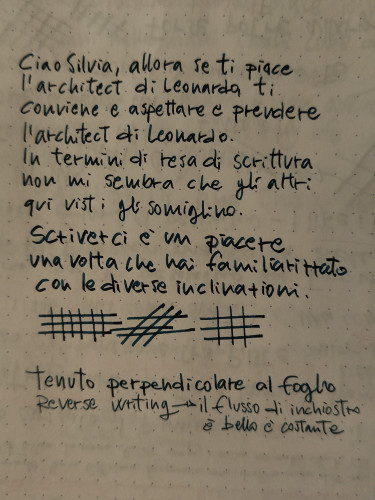 Ciao Silvia, allora se ti piace
l'architect di Leonardo ti
conviene e aspettare e prendere
l'architect di Leonardo.
In termini di resa di scrittura
non mi sembra che gli altri
qui visti gli somiglino.
Scriverci è un piacere
una volta che hai familiarizzato
con le diverse inclinazioni.
Tenuto perpendicolare al foglio
Reverse writing → il flusso di inchiostro
è bello e costante